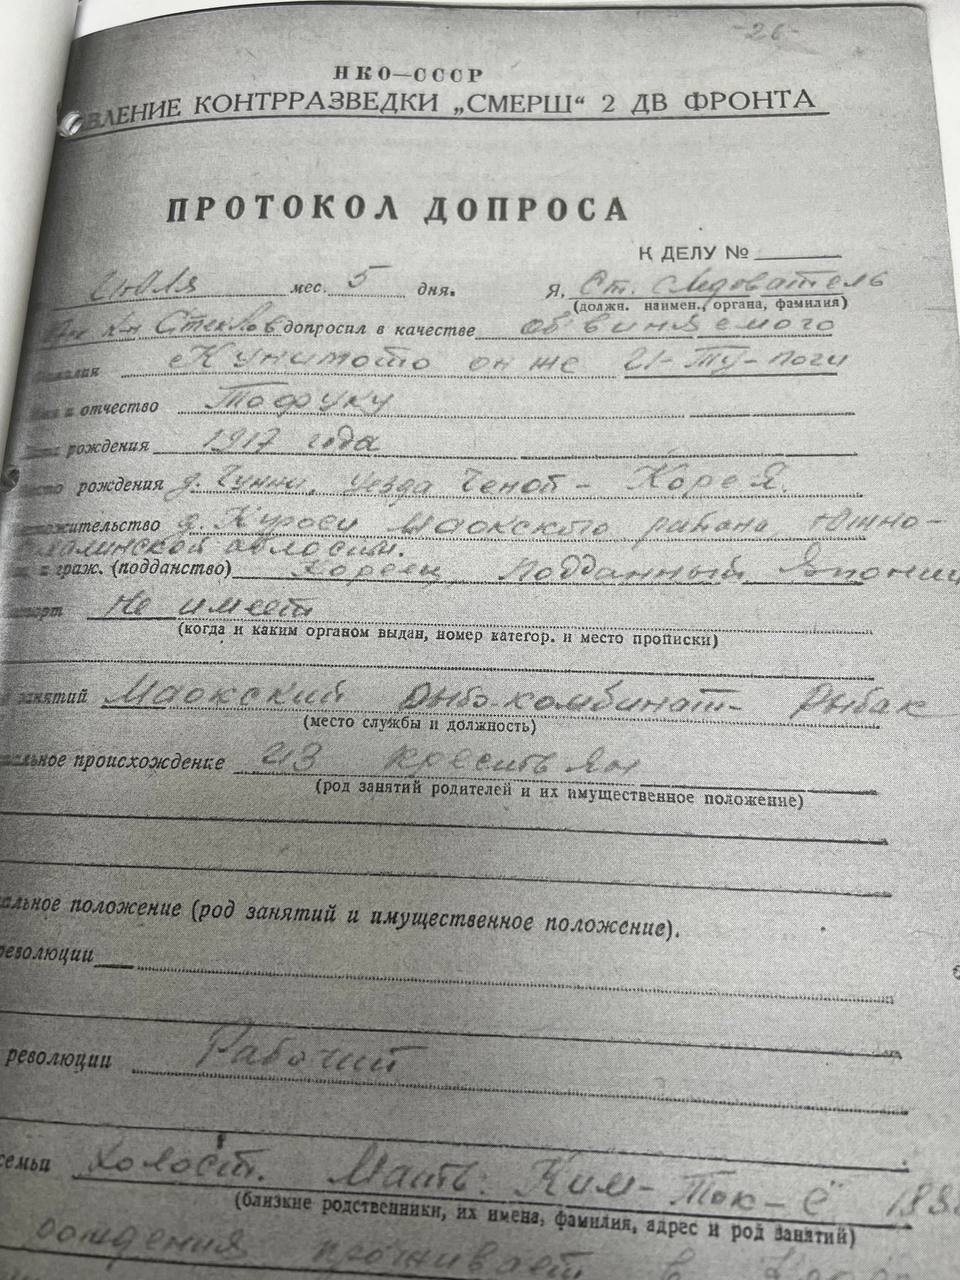 -26-
НКО—СССР
ВЛЕНИЕ КОНТРРАЗВЕДКИ „СМЕРШ“ 2 ДВ ФРОНТА
ПРОТОКОЛ ДОПРОСА
К ДЕЛУ №
июля мес. 5 дня. Я, Ст. следователь
(должн. наимен. органа, фамилия)
к-н Стеклов допросил в качестве обвиняемого
Кунимото он же И-Ту-поги
и отчество Тофуку
рождения 1917 года
рождения д. Чунни, уезда Ченоп - Корея.
жительство д. Куроси Маокского района, Южно-
халинской области.
и граж. (подданство) Кореец Подданный Японии
Не имеет
(когда и каким органом выдан, номер категор. и место прописки)
занятий Маокский рыбо-комбинат- Рыбак
(место службы и должность)
альное происхождение из крестьян
(род занятий родителей и их имущественное положение)
альное положение (род занятий и имущественное положение).
революции
революции Рабочий
семьи Холост. Мать: Ким-Ток-Ё 188
(близкие родственники, их имена, фамилия, адрес и род занятий)
рождения проживает в